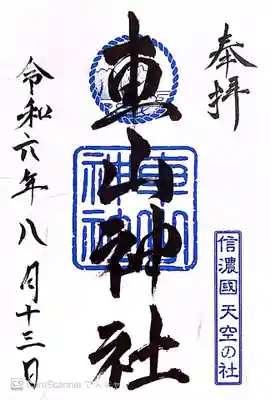 奉拝
車山神社
車山
神社
信濃國 天空の社
令和六年八月十三日
CS CamScanner で